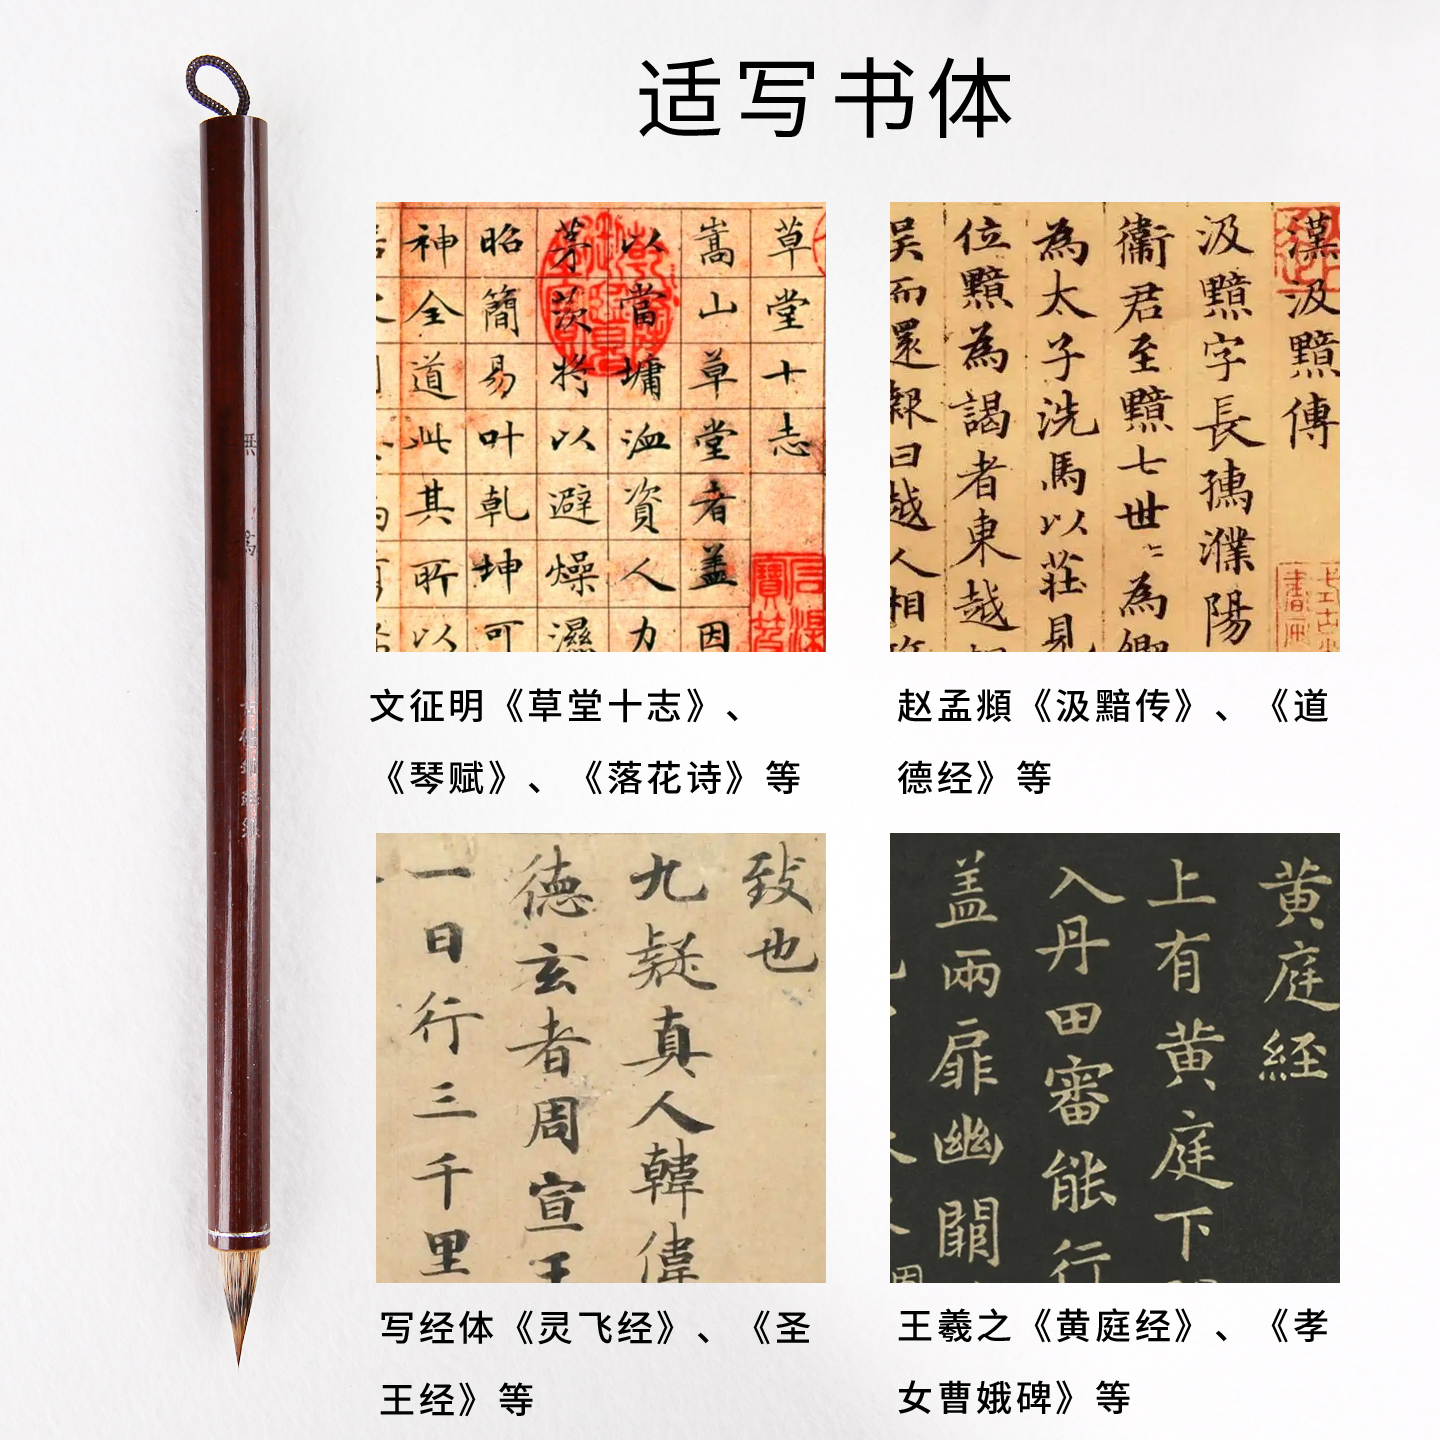 适写书体
無為
草堂十志
嵩山草堂者盖因
以當墉洫資人力
茅茨將以避燥濕
昭簡易叶乾坤可
神全道此其所以
漢汲黯傳
汲黯字長孺濮陽
衛君至黯七世〻為卿
為太子洗馬以莊見
位黯為謁者東越
吴而還報曰越人相
文征明《草堂十志》、
《琴赋》、《落花诗》等
赵孟頫《汲黯传》、《道
德经》等
致也
九疑真人韓偉
德玄者周宣王
一日行三千里
黄庭経
上有黄庭下
入丹田審能行
盖兩扉幽闕
写经体《灵飞经》、《圣
王经》等
王羲之《黄庭经》、《孝
女曹娥碑》等